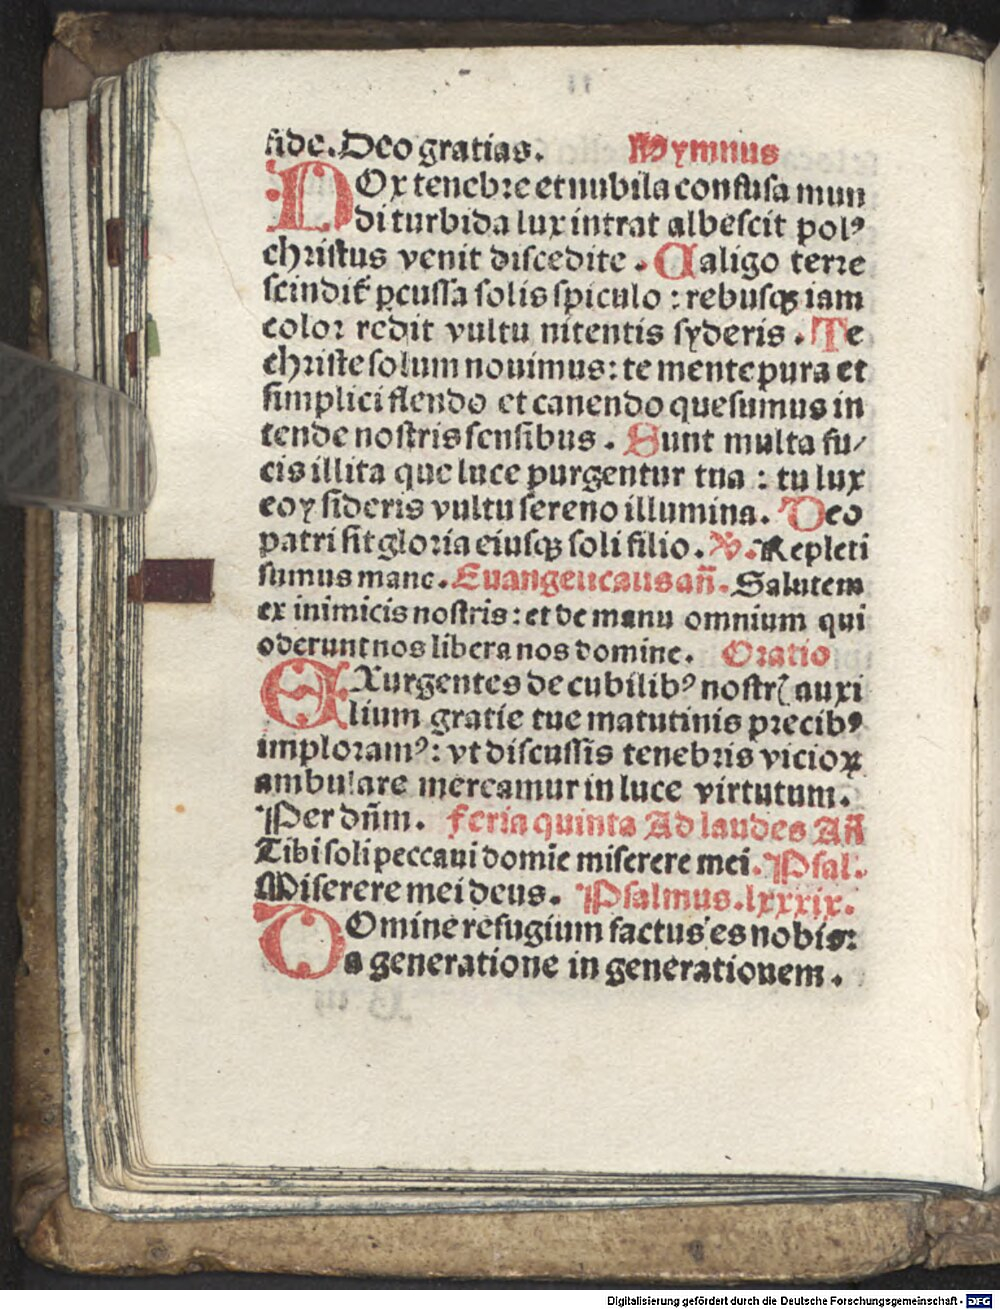 fide. Deo gratias. Hymnus
NOx tenebre et nubila confusa mun
di turbida lux intrat albescit polꝰ
christus venit discedite. Caligo terre
scindit᷑ ꝑcussa solis spiculo : rebusqꝫ iam
color redit vultu nitentis syderis. Te
christe solum nouimus: te mente pura et
simplici flendo et canendo quesumus in
tende nostris sensibus. Sunt multa fu/
cis illita que luce purgentur tua : tu lux
eoꝝ sideris vultu sereno illumina. Deo
patri sit gloria eiusqꝫ soli filio. V. Repleti
sumus mane. Euangelicalis an̄. Salutem
ex inimicis nostris: et de manu omnium qui
oderunt nos libera nos domine. Oratio
EXurgentes de cubilibꝰ nostrꝭ auxi
lium gratie tue matutinis precibꝰ
imploramꝰ: vt discussis tenebris vicioꝝ
ambulare mereamur in luce virtutum.
Per dn̄m. Feria quinta Ad laudes An̄
Tibi soli peccaui domie miserere mei. Psal.
Miserere mei deus. Psalmus. lxxxix.
DOmine refugium factus es nobis:
a generatione in generationem.
Digitalisierung gefördert durch die Deutsche Forschungsgemeinschaft - DFG